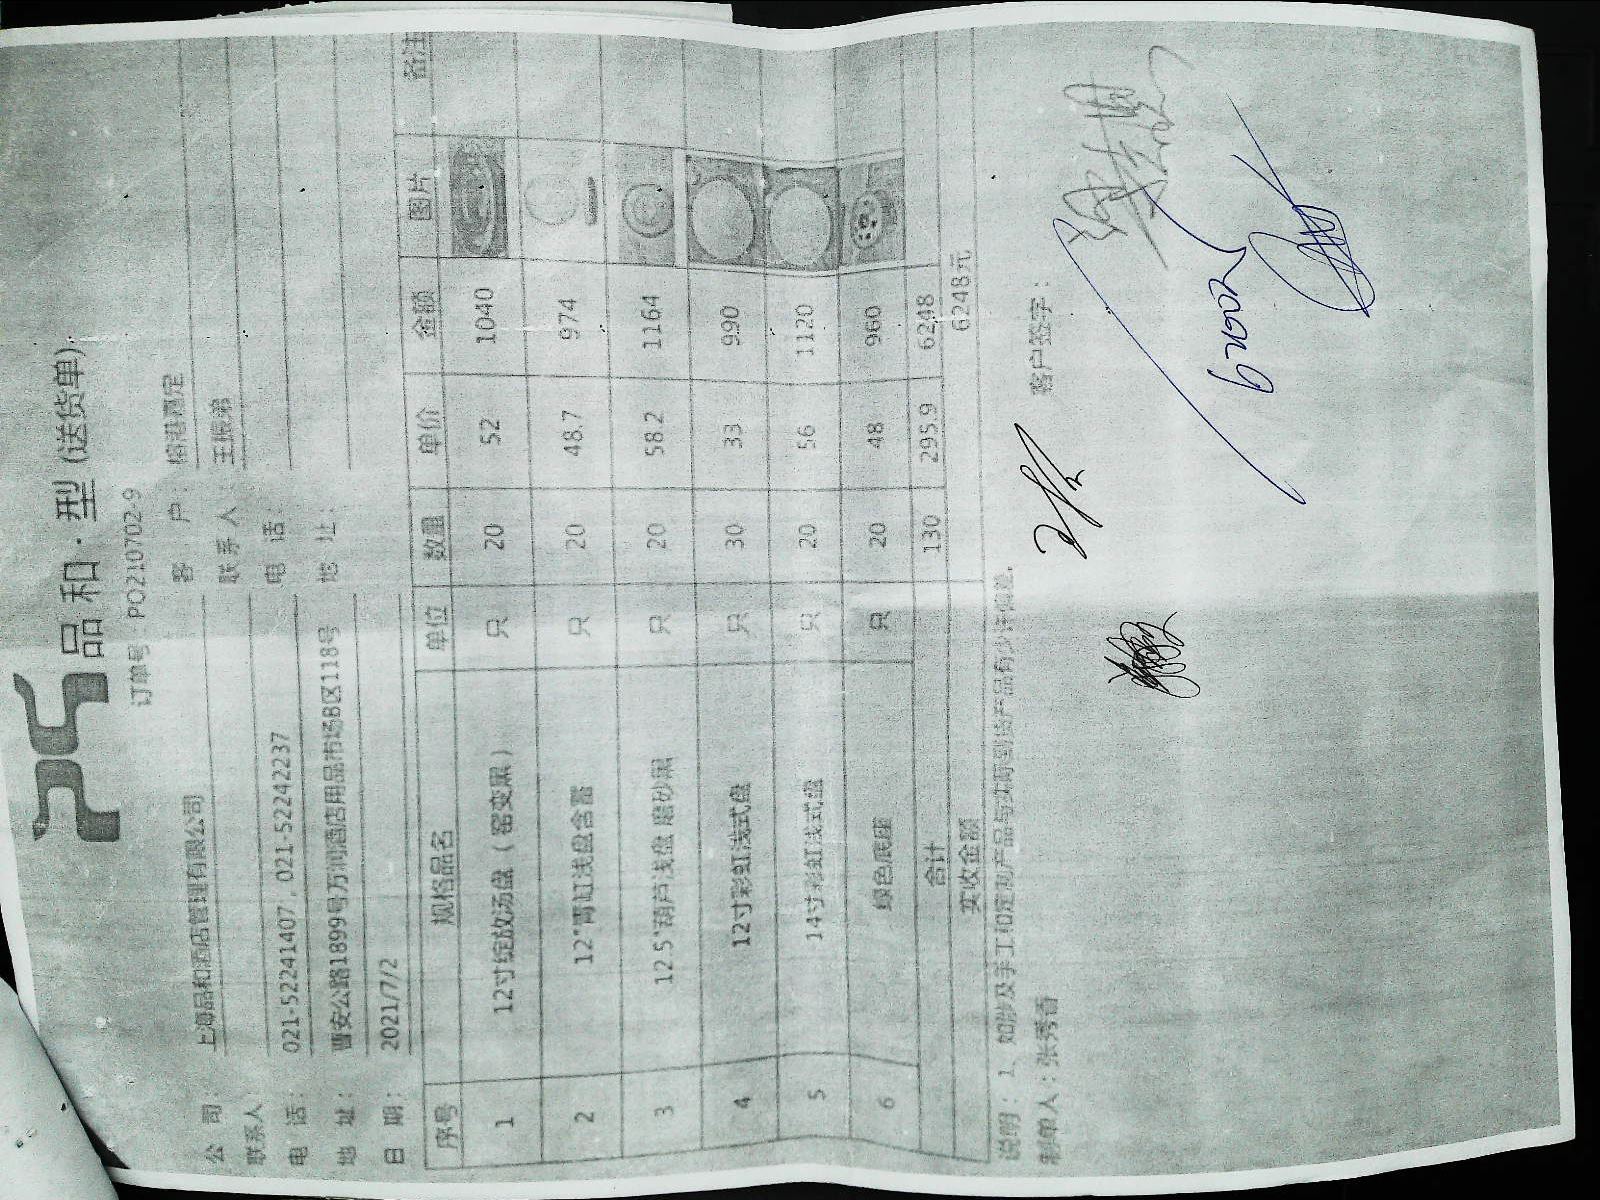 品和·型(送货单)
订单号：PO210702-9
公 司： 上海品和酒店管理有限公司 客 户：
联系人 联系人： 王振弟
电 话： 021-52241407，021-52242237 电 话：
地 址： 曹安公路1899号万润酒店用品市场B区118号 地 址：
日 期： 2021/7/2
序号 规格品名 单位 数量 单价 金额 图片 备注
1 12寸绽放汤盘（窑变黑） 只 20 52 1040
2 12"青缸浅盘含盖 只 20 48.7 974
3 12.5"葫芦浅盘 磨砂黑 只 20 58.2 1164
4 12寸彩虹浅式盘 只 30 33 990
5 14寸彩虹浅式盘 只 20 56 1120
6 绿色底座 只 20 48 960
合计 130 295.9 6248
实收金额 6248元
说明：1、如涉及手工和定制产品与实际到货产品有少许偏差。
制单人：张秀香 客户签字：